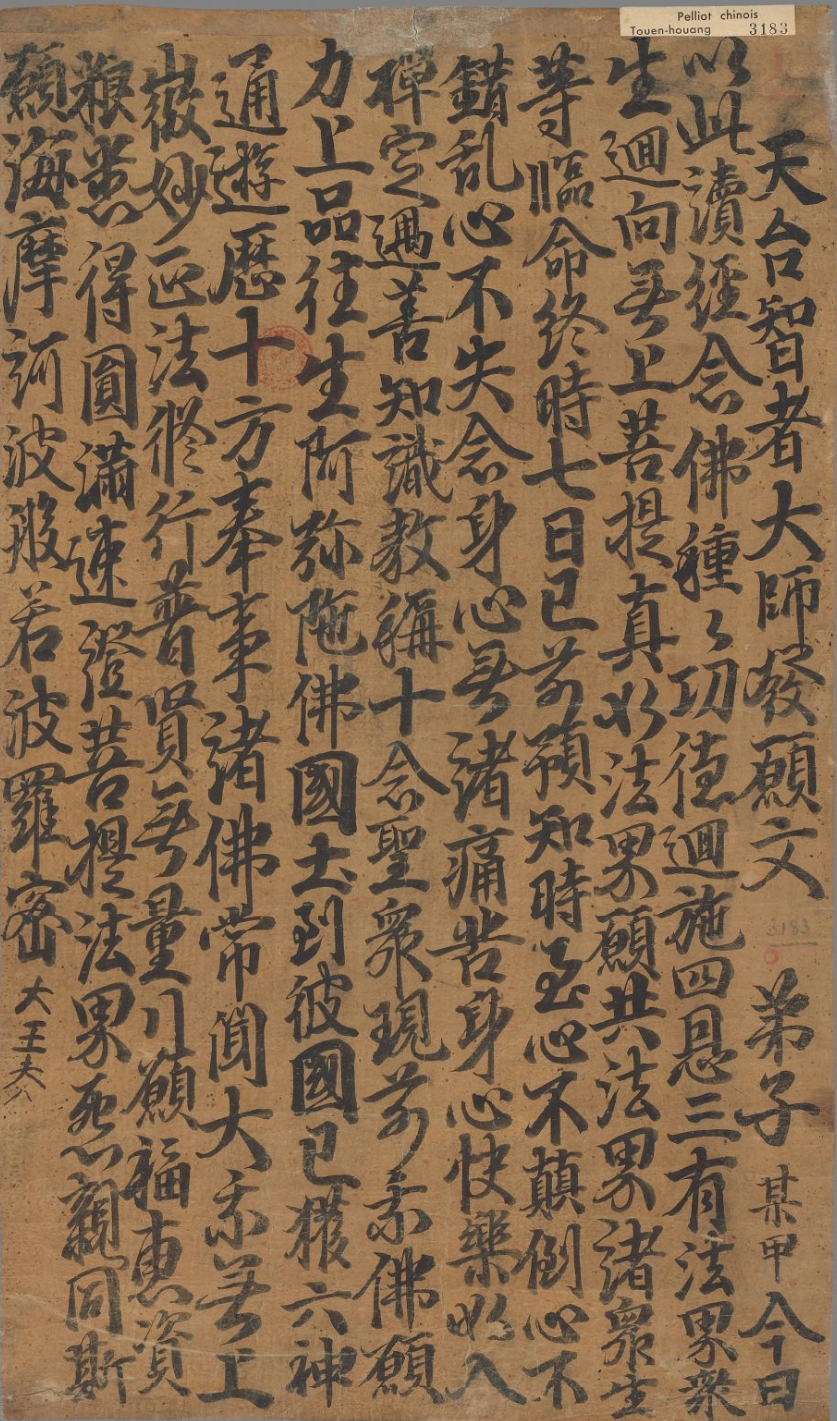 Pelliot chinois
Touen-houang 3183
天台智者大師發願文 弟子某甲今日
以此讀經念佛種々功德迴施四恩三有法界衆
生迴向無上菩提真如法界願共法界諸衆生
等臨命終時七日已前預知時至心不顛倒心不
錯乱心不失念身心無諸痛苦身心快樂如入
禪定遇善知識教稱十念聖衆現前承佛願
力上品往生阿弥陁佛國土到彼國已獲六神
通遊歷十方奉事諸佛常聞大乘無上
微妙正法修行普賢無量行願福惠資
粮悉得圓滿速證菩提法界怨親同斯
願海摩訶般若波羅蜜
3183
大王夫